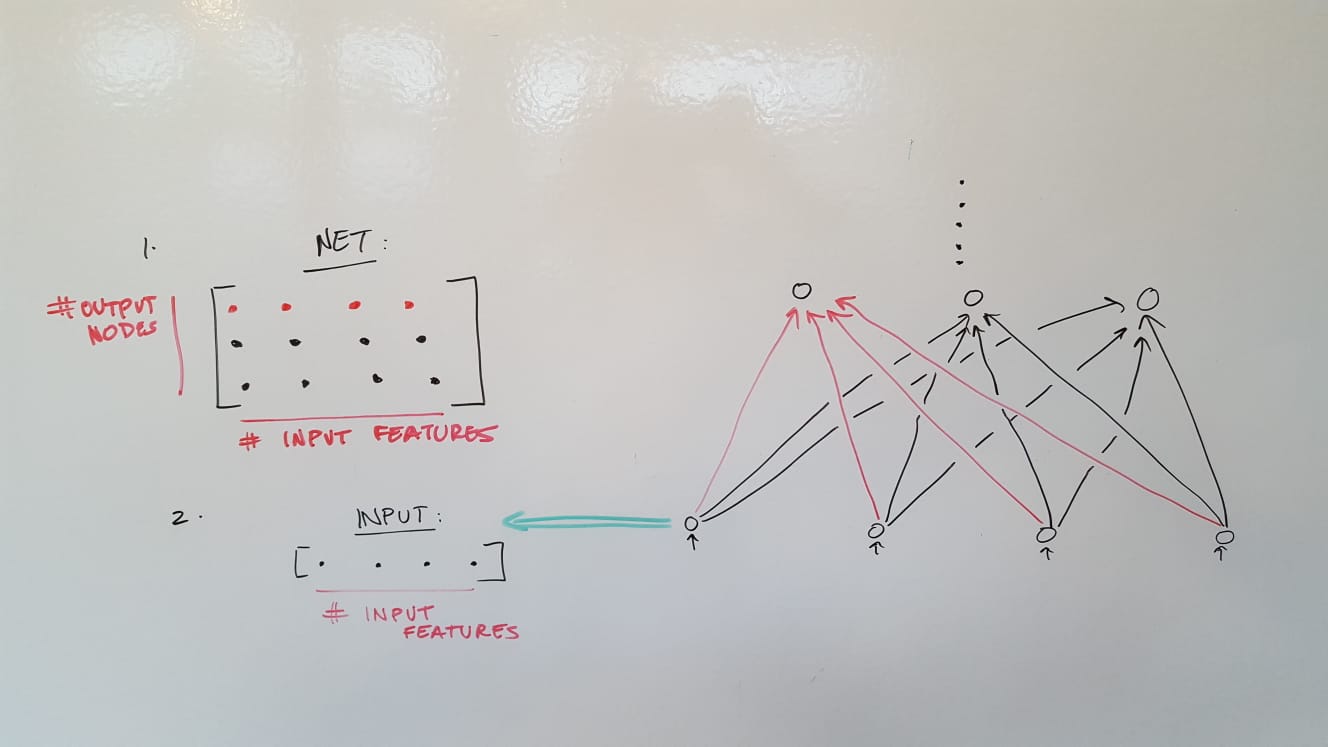 1.
NET:
# OUTPUT
NODES
# INPUT FEATURES
2.
INPUT:
[. . . .]
# INPUT
FEATURES